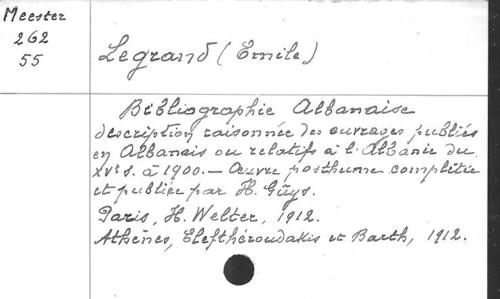 Meester
262
55
Legrand (Emile)
Bibliographie Albanaise
description raisonnée des ouvrages publiés
en Albanais ou relatifs à l'Albanie du
XVe s. à 1900. — Œuvre posthume complétée
et publiée par H. Gûys.
Paris, H. Welter, 1912.
Athènes, Eleftheroudakis et Barth, 1912.